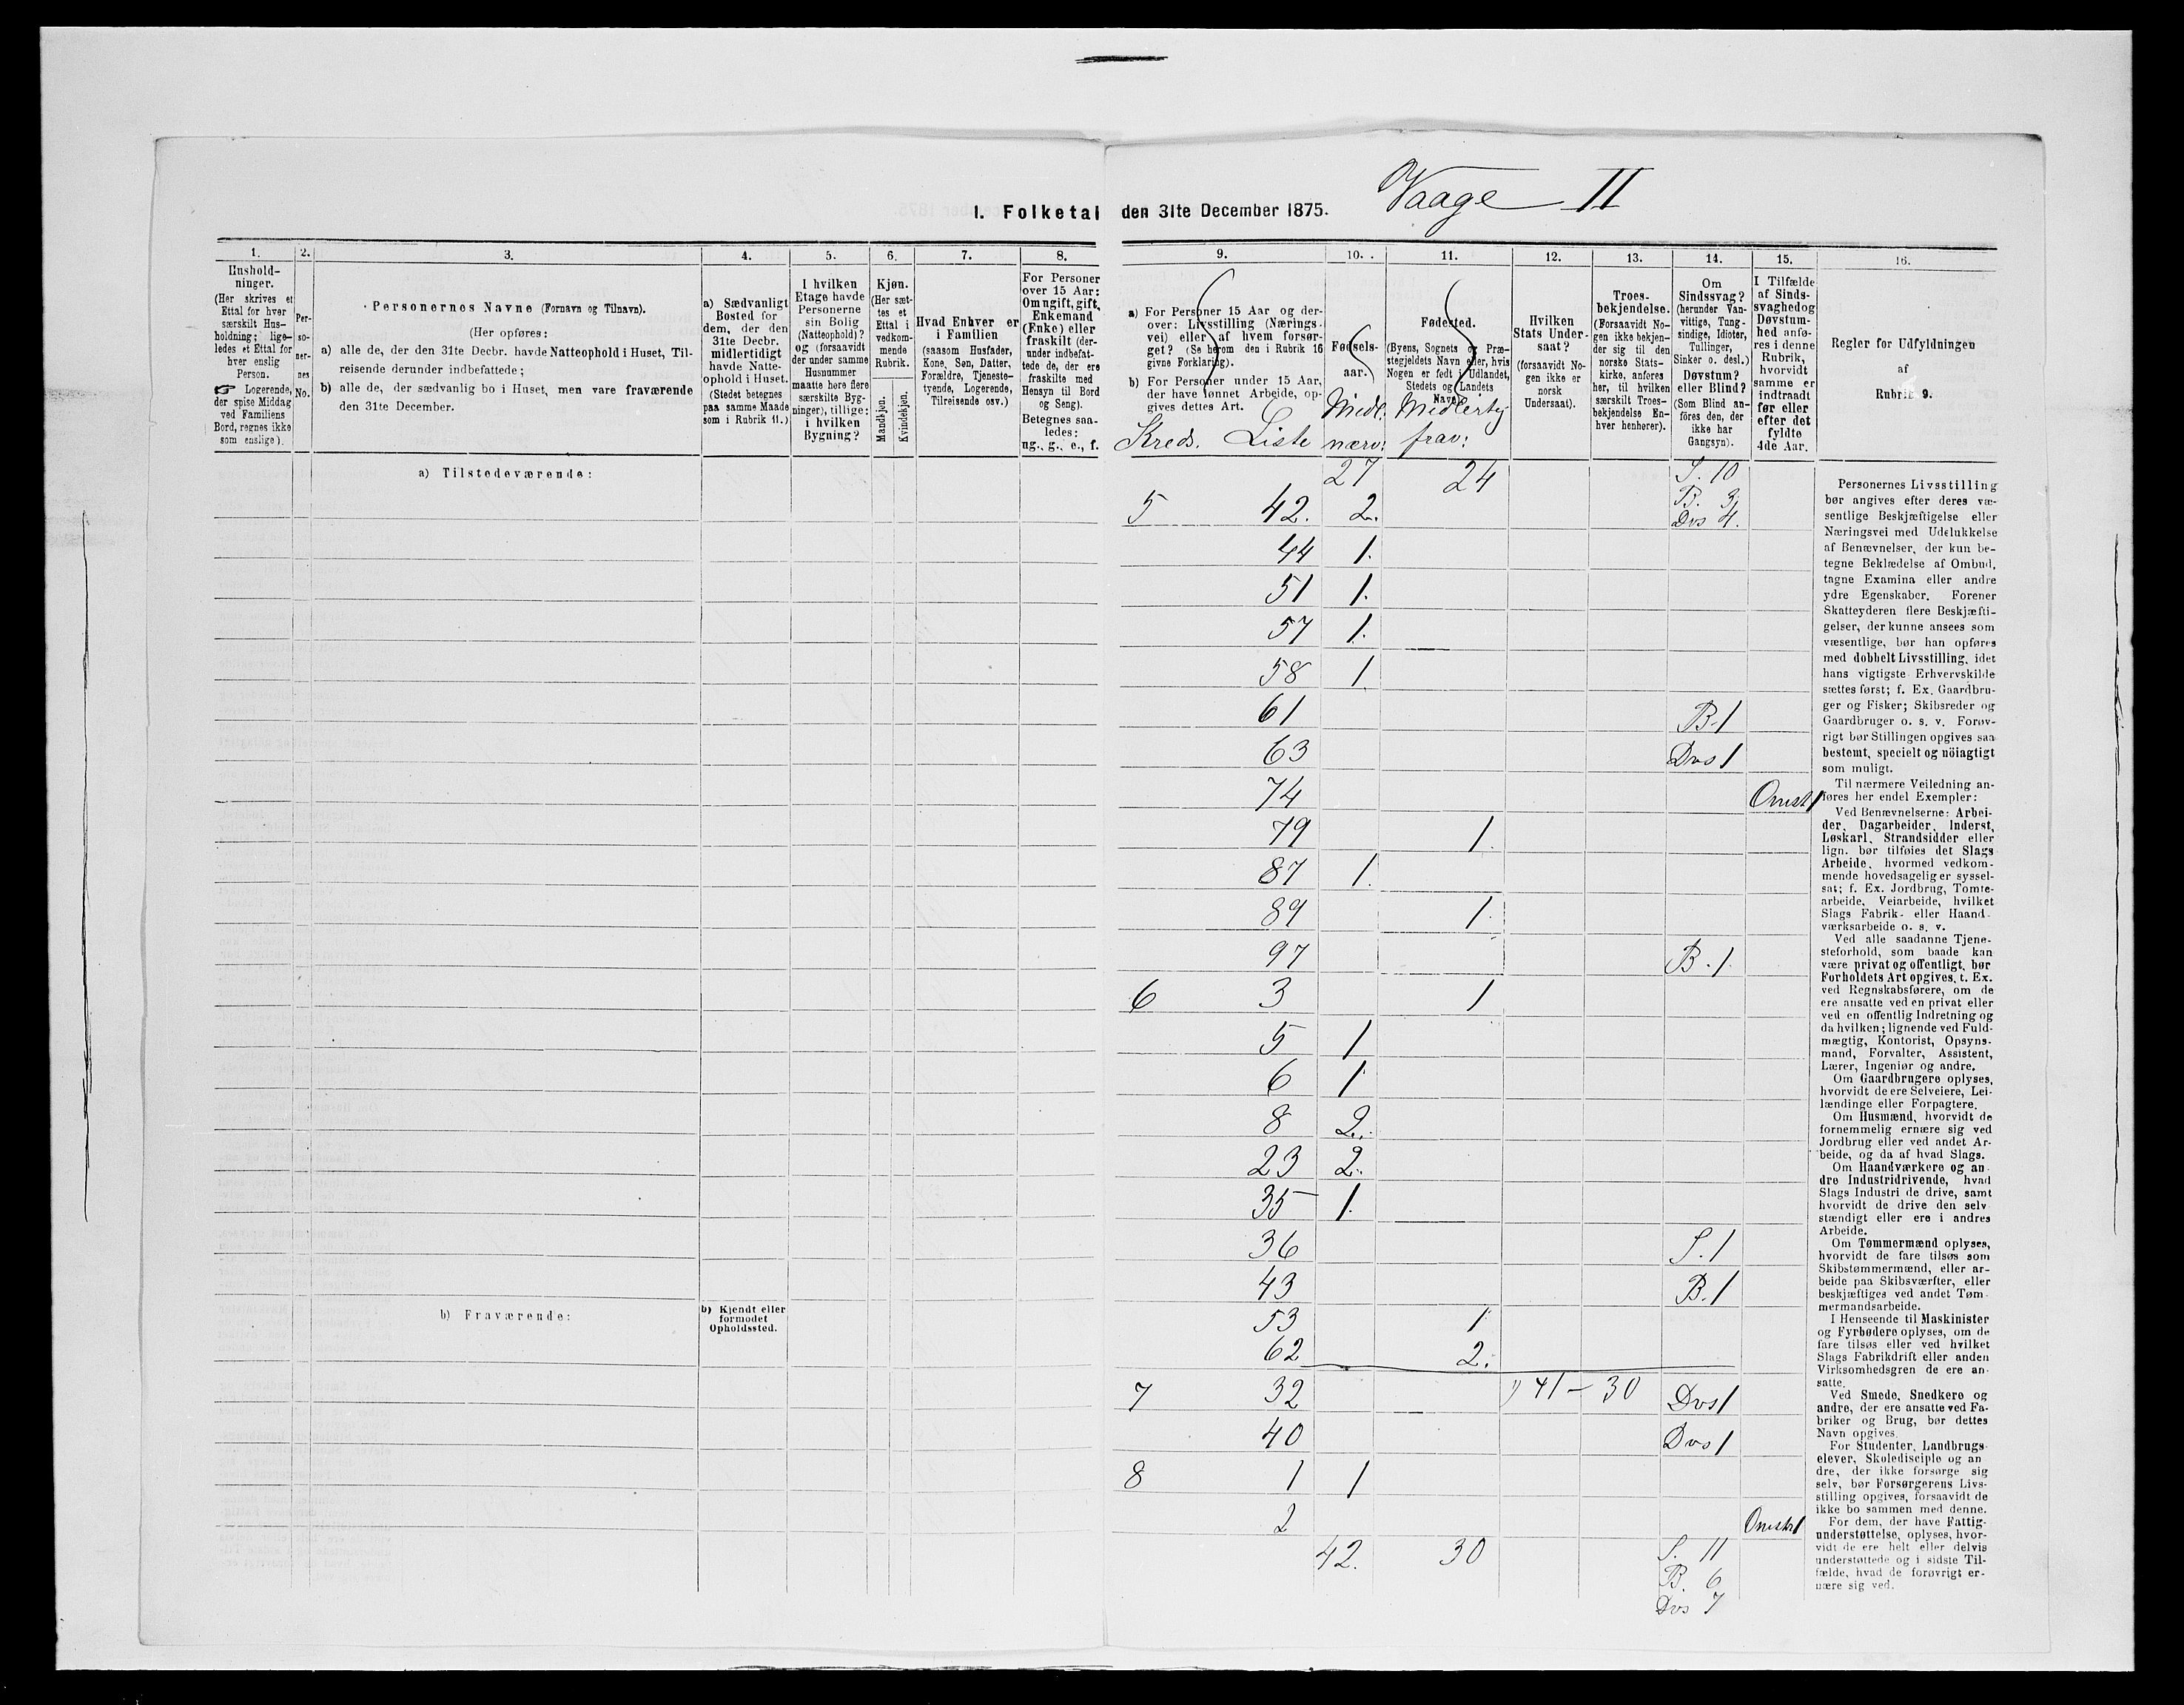 Vaage II
I. Folketal den 31te December 1875.
1.
Hushold-
ninger.
(Her skrives et
Ettal for hver
særskilt Hus-
holdning; lige-
ledes et Ettal for
hver enslig
Person.
☞ Logerende,
der spise Middag
ved Familiens
Bord, regnes ikke
som enslige).
2.
Per-
so-
ner-
nes
No.
3.
Personernes Navne (Fornavn og Tilnavn).
(Her opføres:
a) alle de, der den 31te Decbr. havde Natteophold i Huset, Til-
reisende derunder indbefattede;
b) alle de, der sædvanlig bo i Huset, men vare fraværende
den 31te December.
4.
a) Sædvanligt
Bosted for
dem, der den
31te Decbr.
midlertidigt
havde Natte-
ophold i Huset.
(Stedet betegnes
paa samme Maade
som i Rubrik 11.)
5.
I hvilken
Etage havde
Personerne
sin Bolig
(Natteophold)?
og (forsaavidt
der under samme
Husnummer
maatte høre flere
særskilte Byg-
ninger), tillige:
i hvilken
Bygning?
6.
Kjøn.
(Her sæt-
tes et
Ettal i
vedkom-
mende
Rubrik.
Mandkjøn.
Kvindekjøn.
7.
Hvad Enhver er
i Familien
(saasom Husfader,
Kone, Søn, Datter,
Forældre, Tjeneste-
tyende, Logerende,
Tilreisende osv.)
8.
For Personer
over 15 Aar:
Om ugift, gift,
Enkemand
(Enke) eller
fraskilt (der-
under indbefat-
tede de, der ere
fraskilte med
Hensyn til Bord
og Seng).
Betegnes saa-
ledes:
ug., g., e., f.
9.
a) For Personer 15 Aar og der-
over: Livsstilling (Nærings-
vei) eller af hvem forsør-
get? (Se herom den i Rubrik 16
givne Forklaring).
b) For Personer under 15 Aar,
der have lønnet Arbeide, op-
gives dettes Art.
Kreds. Liste
10.
Fødsels-
aar.
Midl.
nærv:
11.
Fødested.
(Byens, Sognets og Præ-
stegjeldets Navn eller, hvis
Nogen er født i Udlandet,
Stedets og Landets
Navn).
Midlertig
frav:
12.
Hvilken
Stats Under-
saat?
(forsaavidt No-
gen ikke er
norsk
Undersaat).
13.
Troes-
bekjendelse.
(Forsaavidt No-
gen ikke bekjen-
der sig til den
norske Stats-
kirke, anføres
her, til hvilken
særskilt Troes-
bekjendelse En-
hver henhører).
14.
Om
Sindssvag?
(herunder Van-
vittige, Tung-
sindige, Idioter,
Tullinger,
Sinker o. desl.)
Døvstum?
eller Blind?
(Som Blind an-
föres den, der
ikke har
Gangsyn).
15.
I Tilfælde
af Sinds-
svaghed og
Døvstum-
hed anfø-
res i denne
Rubrik,
hvorvidt
samme er
indtraadt
før eller
efter det
fyldte
4de Aar.
16.
Regler for Udfyldningen
af
Rubrik 9.
a) Tilstedeværende:
27 24 S. 10
5 42. 2. B. 3
Dvs 4.
44 1.
51 1.
57 1.
58 1
61 B.1
63 Dvs 1
74 Omst 1
79 1.
87 1.
89 1.
97 B.1
6 3 1
5 1
6 1
8 2.
23 2.
35 1.
36 S.1
43 B.1
b) Fraværende:
b) Kjendt eller
formodet
Opholdssted.
53 1
62 2.
7 32 41 – 30 Dvs 1
40 Dvs 1
8 1 1
2 Omst 1
42. 30 S. 11
B. 6
Dvs 7
Personernes Livsstilling
bør angives efter deres væ-
sentlige Beskjæftigelse eller
Næringsvei med Udelukkelse
af Benævnelser, der kun be-
tegne Beklædelse af Ombud,
tagne Examina eller andre
ydre Egenskaber. Forener
Skatteyderen flere Beskjæfti-
gelser, der kunne ansees som
væsentlige, bør han opføres
med dobbelt Livsstilling, idet
hans vigtigste Erhvervskilde
sættes først; f. Ex. Gaardbru-
ger og Fisker; Skibsreder og
Gaardbruger o. s. v. Forøv-
rigt bør Stillingen opgives saa
bestemt, specielt og nöiagtigt
som muligt.
Til nærmere Veiledning an-
føres her endel Exempler:
Ved Benævnelserne: Arbei-
der, Dagarbeider, Inderst,
Løskarl, Strandsidder eller
lign. bør tilføies det Slags
Arbeide, hvormed vedkom-
mende hovedsagelig er syssel-
sat; f. Ex. Jordbrug, Tomte-
arbeide, Veiarbeide, hvilket
Slags Fabrik- eller Haand-
værksarbeide o. s. v.
Ved alle saadanne Tjene-
steforhold, som baade kan
være privat og offentligt, bør
Forholdets Art opgives, t. Ex.
ved Regnskabsførere, om de
ere ansatte ved en privat eller
ved en offentlig Indretning og
da hvilken; lignende ved Fuld-
mægtig, Kontorist, Opsyns-
mand, Forvalter, Assistent,
Lærer, Ingeniør og andre.
Om Gaardbrugere oplyses,
hvorvidt de ere Selveiere, Lei-
lændinge eller Forpagtere.
Om Husmænd, hvorvidt de
fornemmelig ernære sig ved
Jordbrug eller ved andet Ar-
beide, og da af hvad Slags.
Om Haandværkere og an-
dre Industridrivende, hvad
Slags Industri de drive, samt
hvorvidt de drive den selv-
stændigt eller ere i andres
Arbeide.
Om Tømmermænd oplyses,
hvorvidt de fare tilsøs som
Skibstømmermænd, eller ar-
beide paa Skibsværfter, eller
beskjæftiges ved andet Tøm-
mermandsarbeide.
I Henseende til Maskinister
og Fyrbødere oplyses, om de
fare tilsøs eller ved hvilket
Slags Fabrikdrift eller anden
Virksomhedsgren de ere an-
satte.
Ved Smede, Snedkere og
andre, der ere ansatte ved Fa-
briker og Brug, bør dettes
Navn opgives.
For Studenter, Landbrugs-
elever, Skoledisciple og an-
dre, der ikke forsørge sig
selv, bør Forsørgerens Livs-
stilling opgives, forsaavidt de
ikke bo sammen med denne.
For dem, der have Fattig-
understøttelse, oplyses, hvor-
vidt de ere helt eller delvis
understøttede og i sidste Til-
fælde, hvad de forøvrigt er-
nære sig ved.